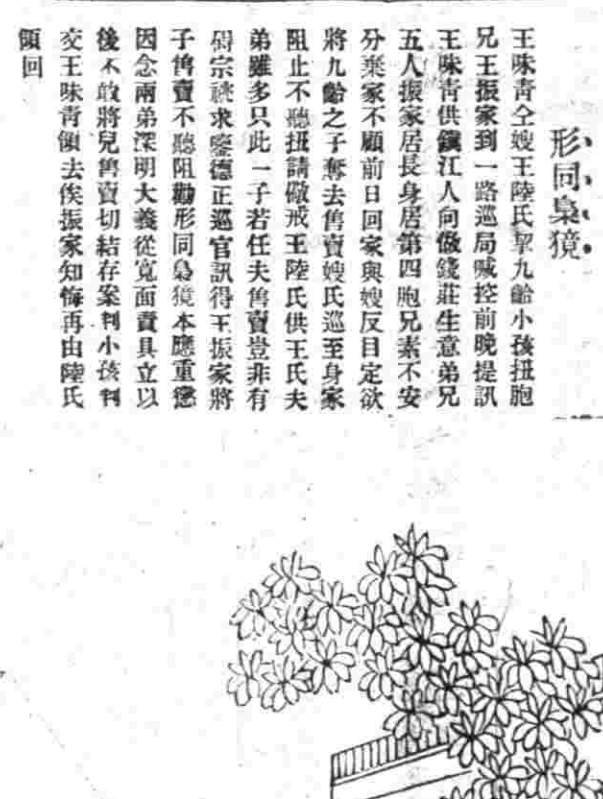 形同梟獍
王味靑仝嫂王陸氏挈九齡小孩扭胞
兄王振家到一路巡局喊控前晚提訊
王味靑供鎭江人向做錢莊生意弟兄
五人振家居長身居第四胞兄素不安
分棄家不顧前日回家與嫂反目定欲
將九齡之子奪去售賣嫂氏逃至身家
阻止不聽扭請儆戒王陸氏供王氏夫
弟雖多只此一子若任夫售賣豈非有
碍宗祧求鑒德正巡官訊得王振家將
子售賣不聽阻勸形同梟獍本應重懲
因念兩弟深明大義從寬面責具立以
後不敢將兒售賣切結存案判小孩判
交王味靑領去俟振家知悔再由陸氏
領回